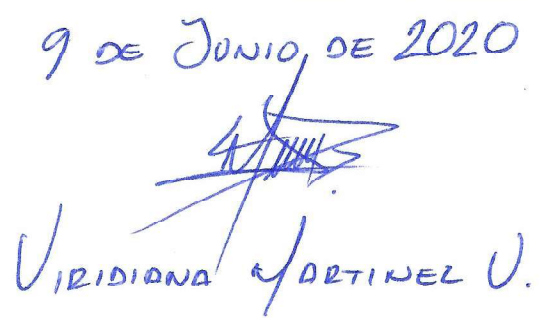 9 DE JUNIO, DE 2020
VIRIDIANA MARTINEZ V.